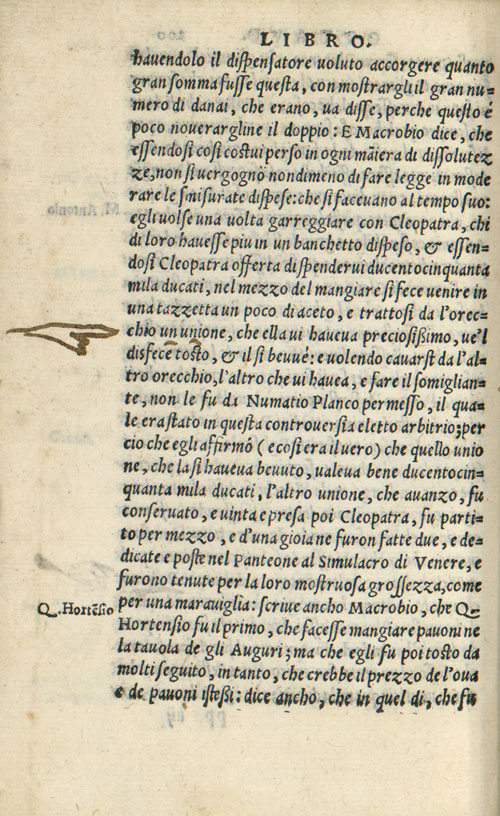 LIBRO.
havendolo il dispensatore uoluto accorgere quanto
gran somma fusse questa, con mostrargli il gran nu=
mero di danai, che erano, ua disse, perche questo é
poco noverargline il doppio: E Macrobio dice, che
essendosi cosi costui perso in ogni mãiera di dissolutez
ze, non si uergognò nondimeno di fare legge in mode
rare le smisurate dispese: che si faceuano al tempo suo:
egli uolse una uolta garreggiare con Cleopatra, chi
di loro hauesse piu in un banchetto dispeso, & essen=
dosi Cleopatra offerta di spenderui ducentocinquanta
mila ducati, nel mezzo del mangiare si fece uenire in
una tazzetta un poco di aceto, e trattosi da l'orec=
chio un unione, che ella ui haueua preciosissimo, ue'l
disfece tosto, & il si beuué: e uolendo cauarsi da l'al=
tro orecchio, l'altro che ui hauea, e fare il somiglian=
te, non le fu da Numatio Planco permesso, il qua=
le era stato in questa controuersia eletto arbitrio; per
cio che egli affirmò (e cosi era il uero) che quello unio
ne, che la si haueua beuuto, ualeua bene ducentocin=
quanta mila ducati, l'altro unione, che auanzo, fu
conseruato, e uinta e presa poi Cleopatra, fu parti=
to per mezzo, e d'una gioia ne furon fatte due, e de=
dicate e poste nel Panteone al Simulacro di Venere, e
furono tenute per la loro mostruosa grossezza, come
per una marauiglia: scriue ancho Macrobio, che Q.
Q. Hortẽsio
Hortensio fu il primo, che facesse mangiare pauoni ne
la tauola de gli Auguri; ma che egli fu poi tosto da
molti seguito, in tanto, che crebbe il prezzo de l'oua
e de pauoni istessi: dice ancho, che in quel dì, che fu